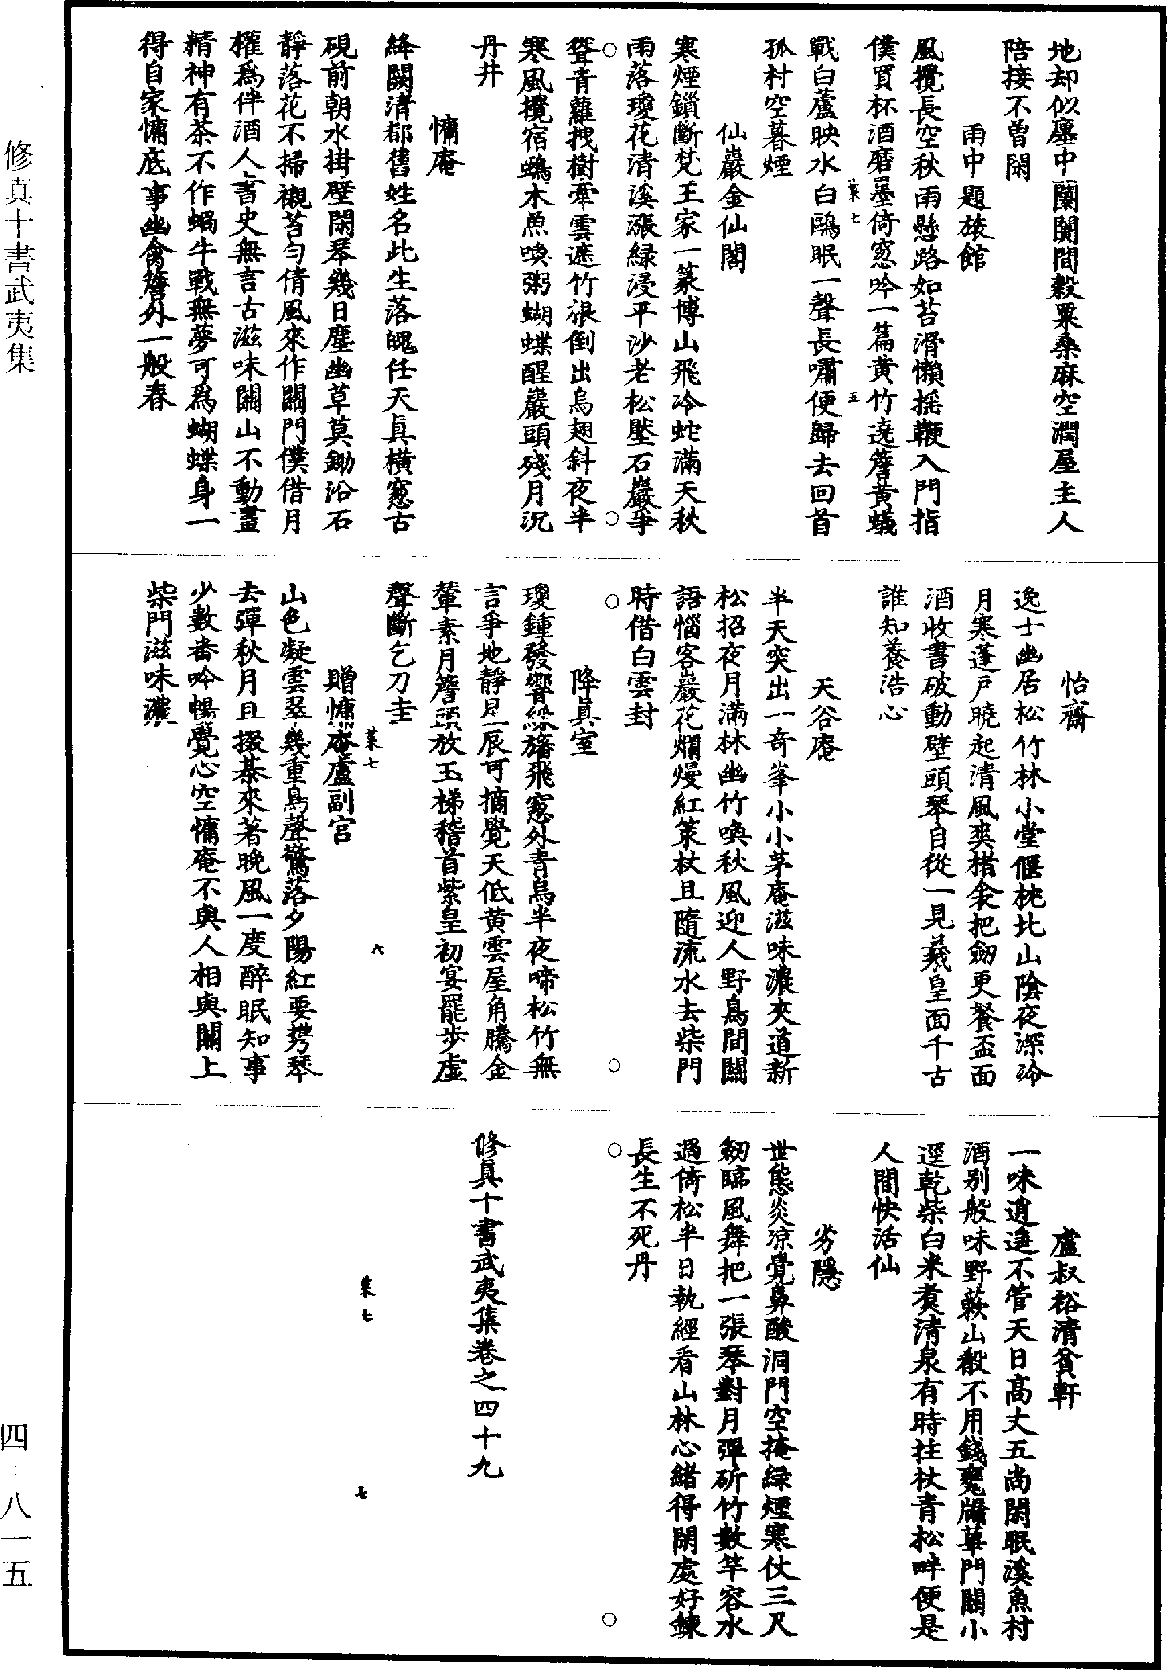 地却似廛中闤闠間穀粟桑麻空潤屋主人
陪接不曾閑
雨中題旅館
風攪長空秋雨懸路如苔滑懶搖鞭入門指
僕買杯酒磨墨倚窓吟一篇黄竹遶簷黄蟻
菓七
五
戰白蘆映水白鷗眠一聲長嘯便歸去回首
孤村空暮煙
仙巖金仙閣
寒煙鎖斷梵王家一篆博山飛冷蛇滿天秋
雨落瓊花清溪漲緑浸平沙老松墜石巖爭
聳青蘿拽樹牽雲遮竹根倒出烏翅斜夜半
寒風攪宿鴉木魚喚粥蝴蝶醒巖頭殘月沉
丹井
慵庵
絳闕清都舊姓名此生落魄任天真橫窓古
硯前朝水掛壁閑琴幾日塵幽草莫鋤沿石
靜落花不掃襯苔勻倩風來作關門僕借月
權爲伴酒人書史無言古滋味關山不動畫
精神有茶不作蝸牛戰無夢可爲蝴蝶身一
得自家慵底事幽禽簷外一般春
怡齋
逸士幽居松竹林小堂偃枕北山陰夜深冷
月寒蓬戶曉起清風爽楮衾把劒更餐盃面
酒收書破動壁頭琴自從一見羲皇面千古
誰知養浩心
天谷庵
半天突出一奇峯小小茅庵滋味濃夾道新
松招夜月滿林幽竹喚秋風迎人野鳥間關
語惱客巖花爛熳紅策杖且隨流水去柴門
時借白雲封
降真室
瓊鍾發響絳旛飛窓外青烏半夜啼松竹無
言爭地靜星辰可摘覺天低黄雲屋角騰金
輦素月簷頭放玉梯稽首紫皇初宴罷步虛
聲斷乞刀圭
菓七
六
贈慵庵盧副宫
山色凝雲翠幾重鳥聲驚落夕陽紅要携琴
去彈秋月且掇棊來著晚風一度醉眠知事
少數番吟暢覺心空慵庵不與人相與關上
柴門滋味濃
盧叔裕清貧軒
一味逍遥不管天日高丈五尚閑眠溪魚村
酒别般味野蔌山殽不用錢甕牖蓽門關小
逕乾柴白米煮清泉有時拄杖青松畔便是
人間快活仙
劣隱
世態炎凉覺鼻酸洞門空掩緑煙寒仗三尺
劒臨風舞把一張琴對月彈斫竹數竿容水
過倚松半日執經看山林心緒得閑處好鍊
長生不死丹
修真十書武夷集卷之四十九
菓七
七
修真十書武夷集
四·八一五